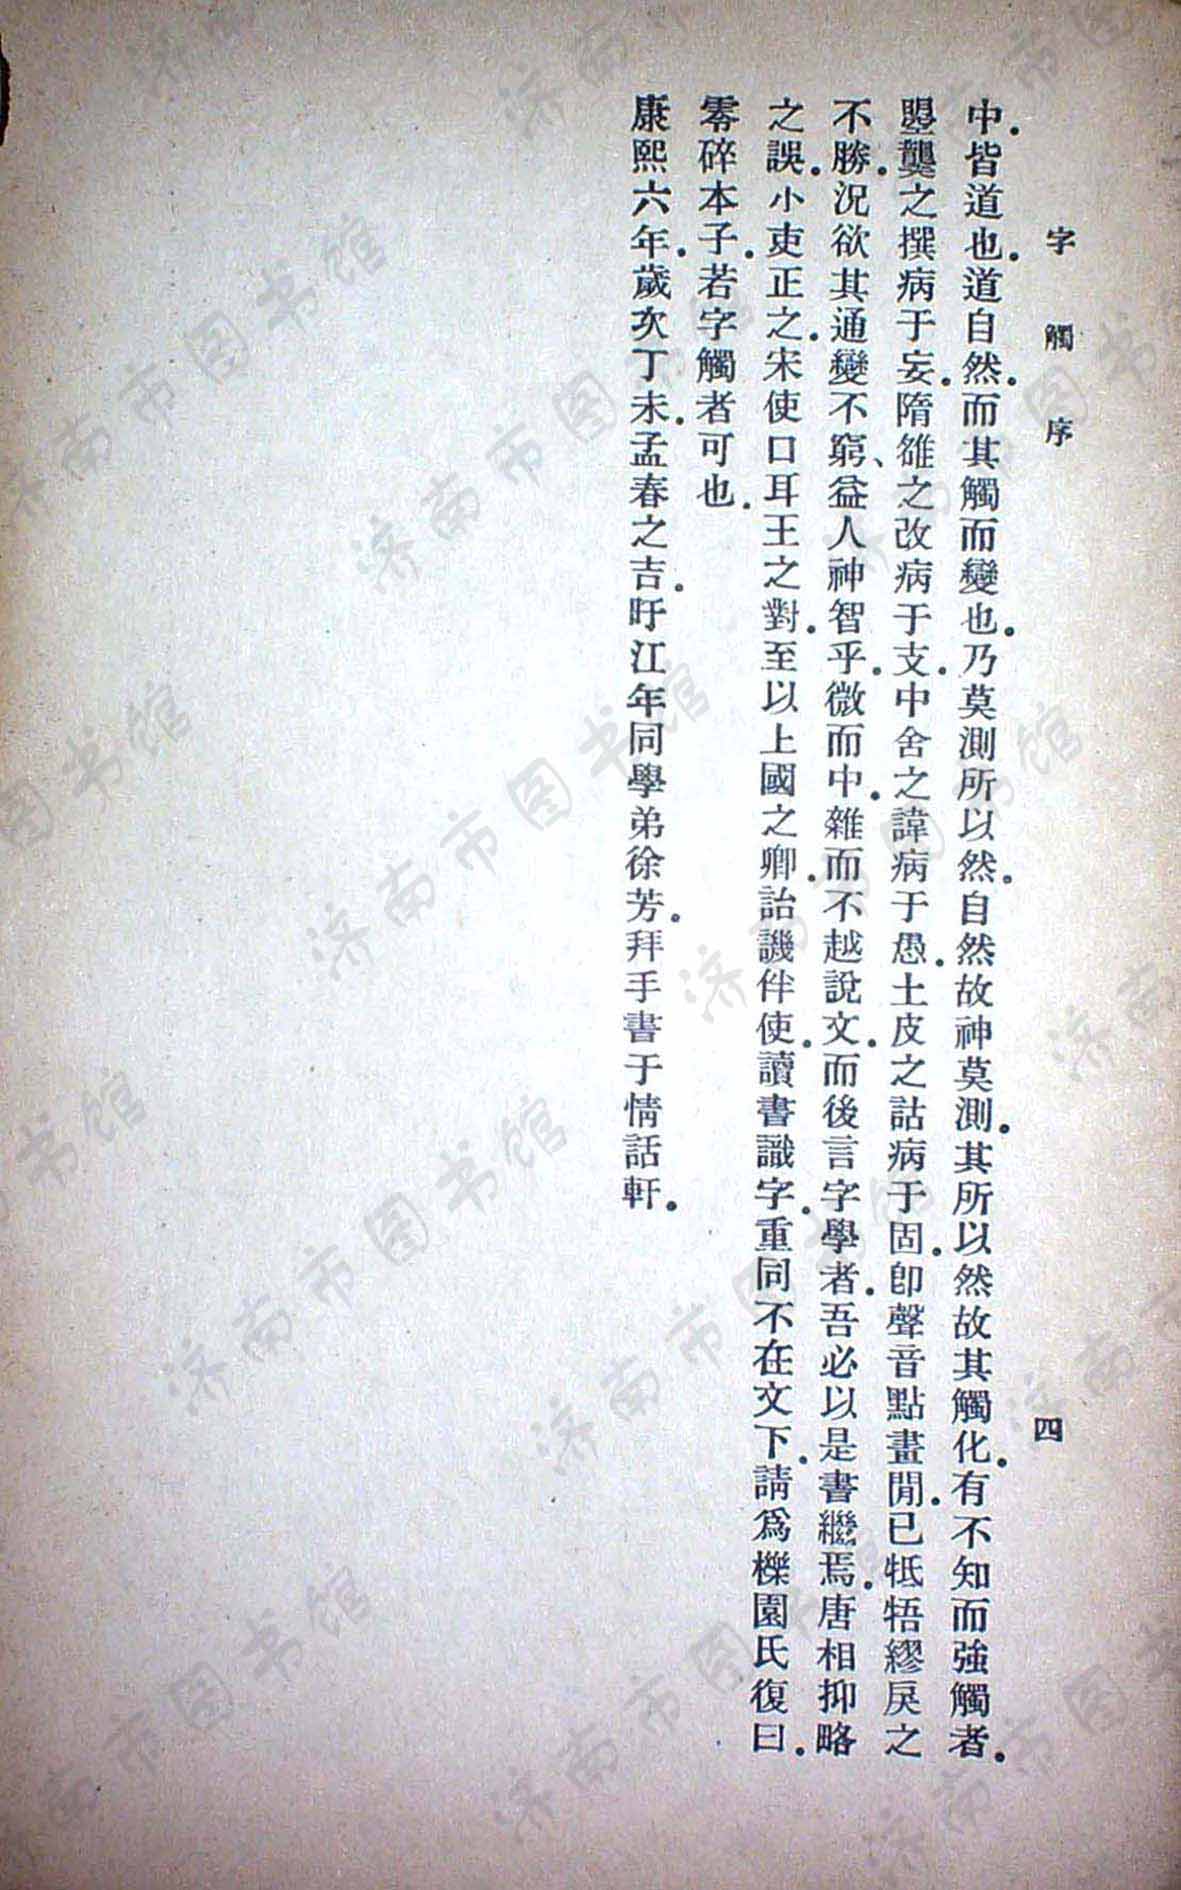 字觸序 四
中。皆道也。道自然。而其觸而變也。乃莫測所以然。自然故神莫測。其所以然故其觸化。有不知而強觸者。
曌龑之撰病于妄。隋雒之改病于支。中舍之諱病于愚。土皮之詁病于固。卽聲音點畫閒。已牴牾繆戾之
不勝。況欲其通變不窮、益人神智乎。微而中。雜而不越說文。而後言字學者。吾必以是書繼焉。唐相抑略
之誤。小吏正之。宋使口耳王之對。至以上國之卿。詒譏伴使。讀書識字。重同不在文下。請爲櫟園氏復曰。
零碎本子。若字觸者可也。
康熙六年。歲次丁未。孟春之吉。盱江年同學弟徐芳。拜手書于情話軒。
济南市图书馆